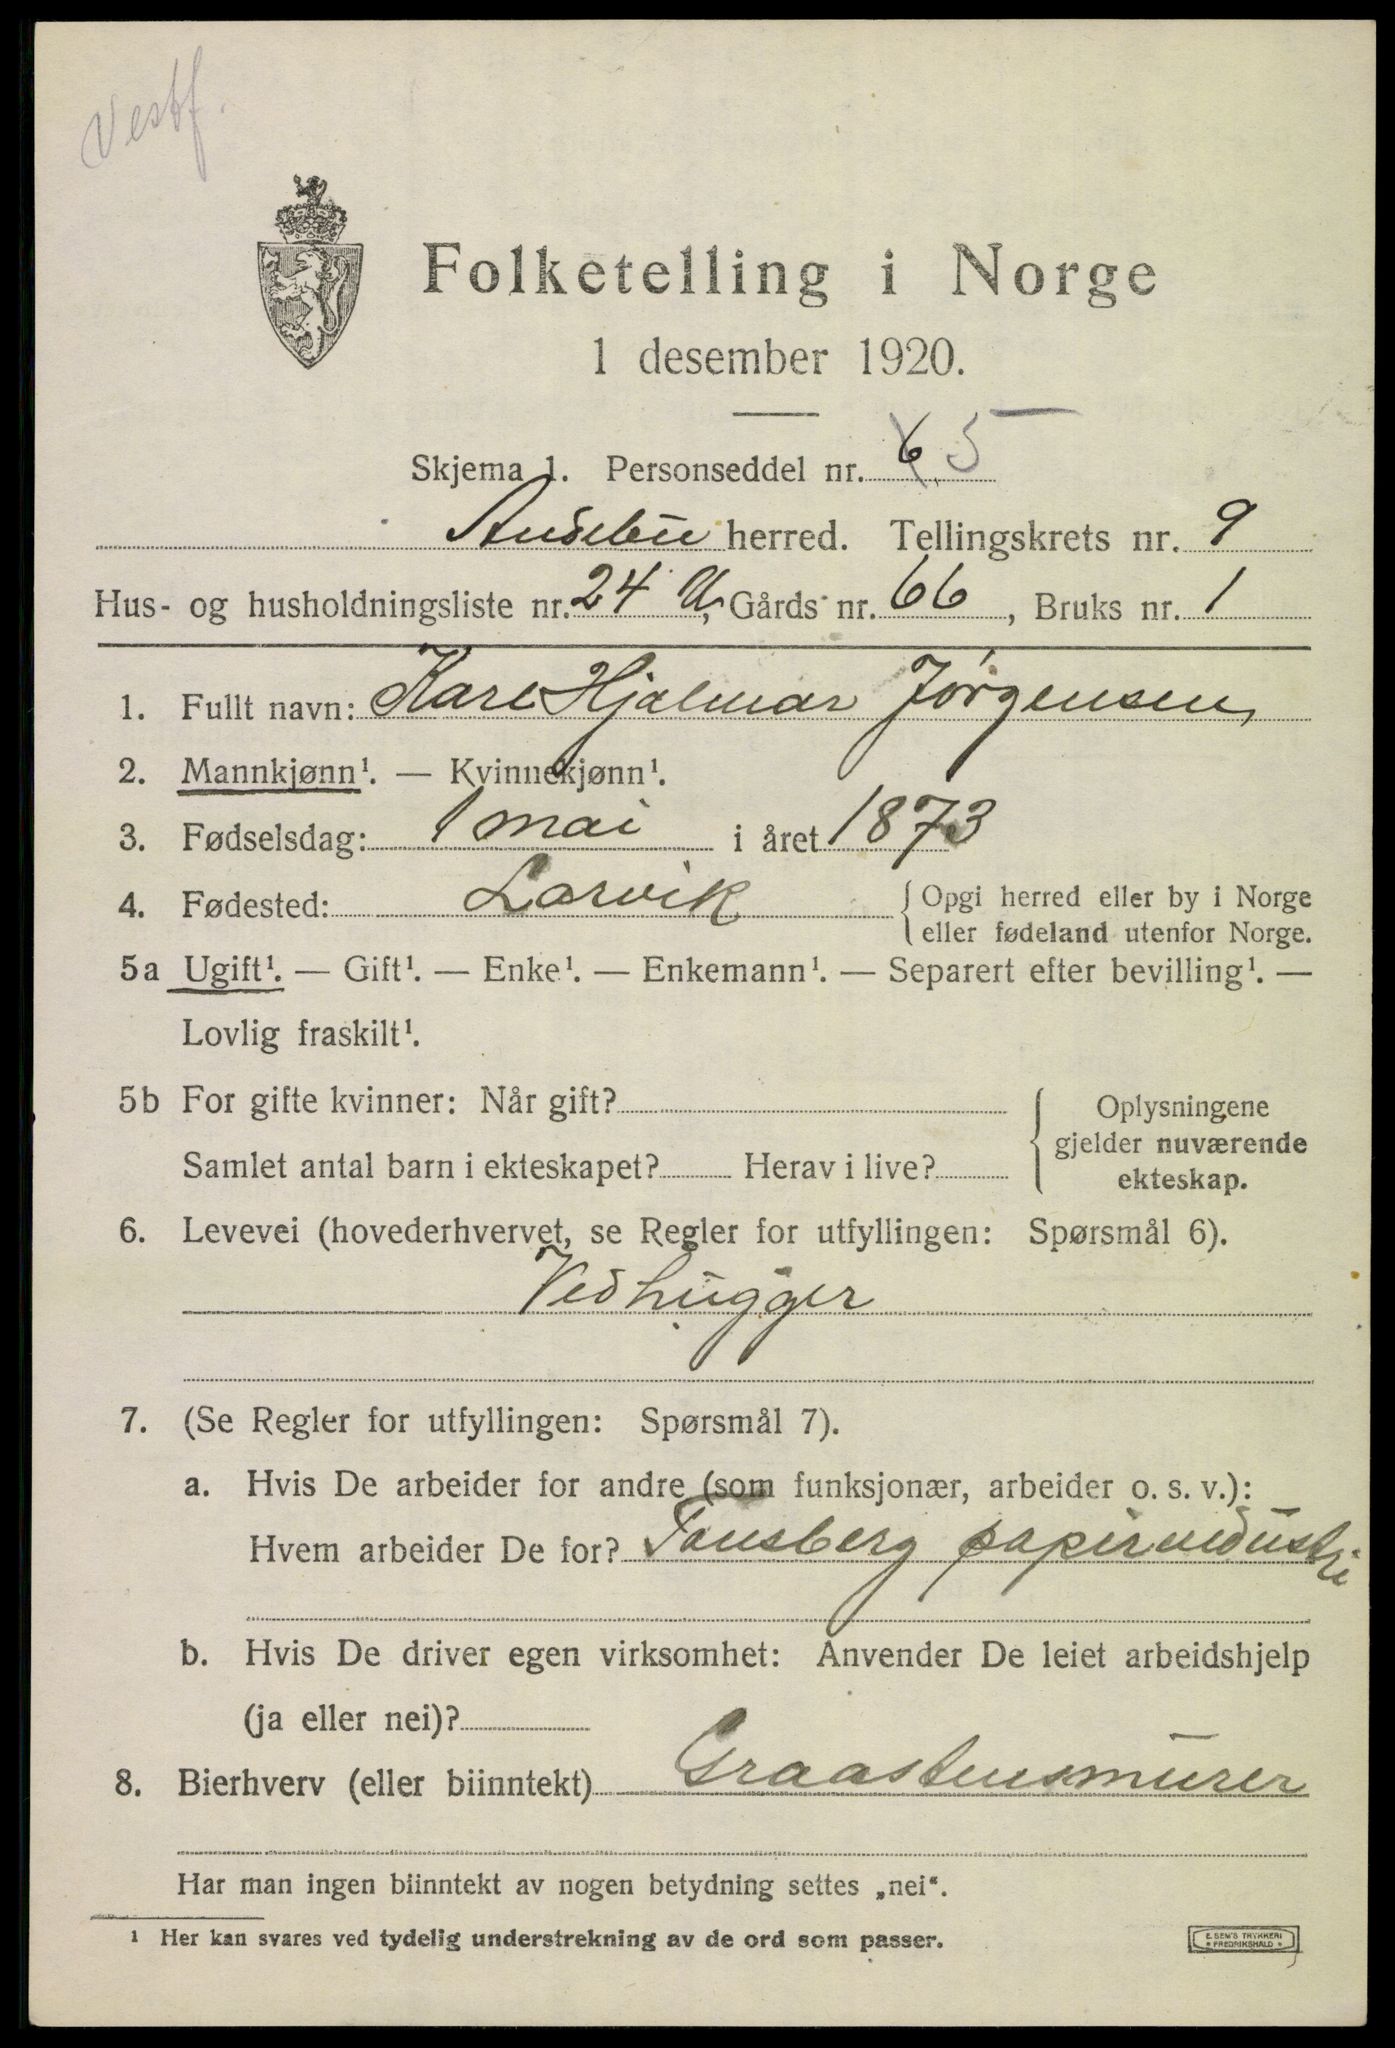 Vestf.
Folketelling i Norge
1 desember 1920.
Skjema 1. Personseddel nr. 6 5
Andebu herred. Tellingskrets nr. 9
Hus- og husholdningsliste nr. 24 U, Gårds nr. 66, Bruks nr. 1
1. Fullt navn: Karl Hjalmar Jørgensen
2. Mannkjønn¹. — Kvinnekjønn¹.
3. Fødselsdag: 1 mai i året 1873
4. Fødested: Larvik { Opgi herred eller by i Norge
eller fødeland utenfor Norge.
5a Ugift¹. — Gift¹. — Enke¹. — Enkemann¹. — Separert efter bevilling¹. —
Lovlig fraskilt¹.
5b For gifte kvinner: Når gift?
Samlet antal barn i ekteskapet? Herav i live?
{ Oplysningene
gjelder nuværende
ekteskap.
6. Levevei (hovederhvervet, se Regler for utfyllingen: Spørsmål 6).
Vedhugger
7. (Se Regler for utfyllingen: Spørsmål 7).
a. Hvis De arbeider for andre (som funksjonær, arbeider o. s. v.):
Hvem arbeider De for? Tønsberg papirindustri
b. Hvis De driver egen virksomhet: Anvender De leiet arbeidshjelp
(ja eller nei)?
8. Bierhverv (eller biinntekt) Graastensmurer
Har man ingen biinntekt av nogen betydning settes „nei“.
¹ Her kan svares ved tydelig understrekning av de ord som passer.
E. SEM'S TRYKKERI
FREDRIKSHALD